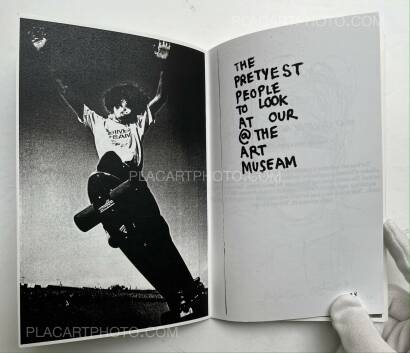 THE
PRETYEST
PEOPLE
TO LOOK
AT OUR
@ THE
ART
MUSEAM
PLACARTPHOTO.COM
PLACARTPHOTO.COM
PLACARTPHOTO.COM
PLACARTPHOTO.COM